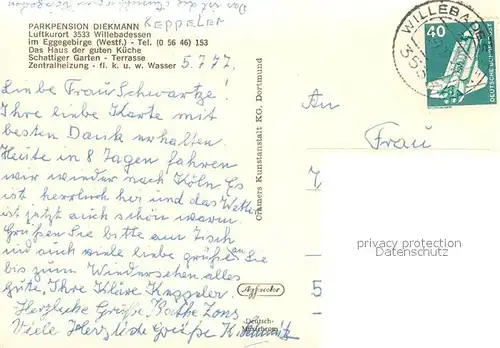 PARKPENSION DIEKMANN
KEPPELER
Luftkurort 3533 Willebadessen
im Eggegebirge (Westf.) - Tel. (0 56 46) 153
Das Haus der guten Küche
Schattiger Garten - Terrasse
Zentralheizung - fl. k. u. w. Wasser
5.7.77.
Liebe Frau Schwartze!
Ihre liebe Karte mit
besten Dank erhalten.
Heute in 8 Tagen fahren
wir wieder nach Köln. Es
ist herrlich hir und das Wetter
ist jetzt auch schön warm.
Grüßen Sie bitte am Tisch
und auch viele liebe Grüße an Sie
bis zum Wiedersehen alles
gute, Ihre Kläre Keppeler.
Herzliche Grüße, Zons
Viele Herzliche Grüße K. Schmitz
Cramers Kunstanstalt KG, Dortmund
Agfacolor
Deutsch-
WILLEBADE
353
40
DEUTSCHE BUNDESPOST
An
Frau
5
privacy protection
Datenschutz